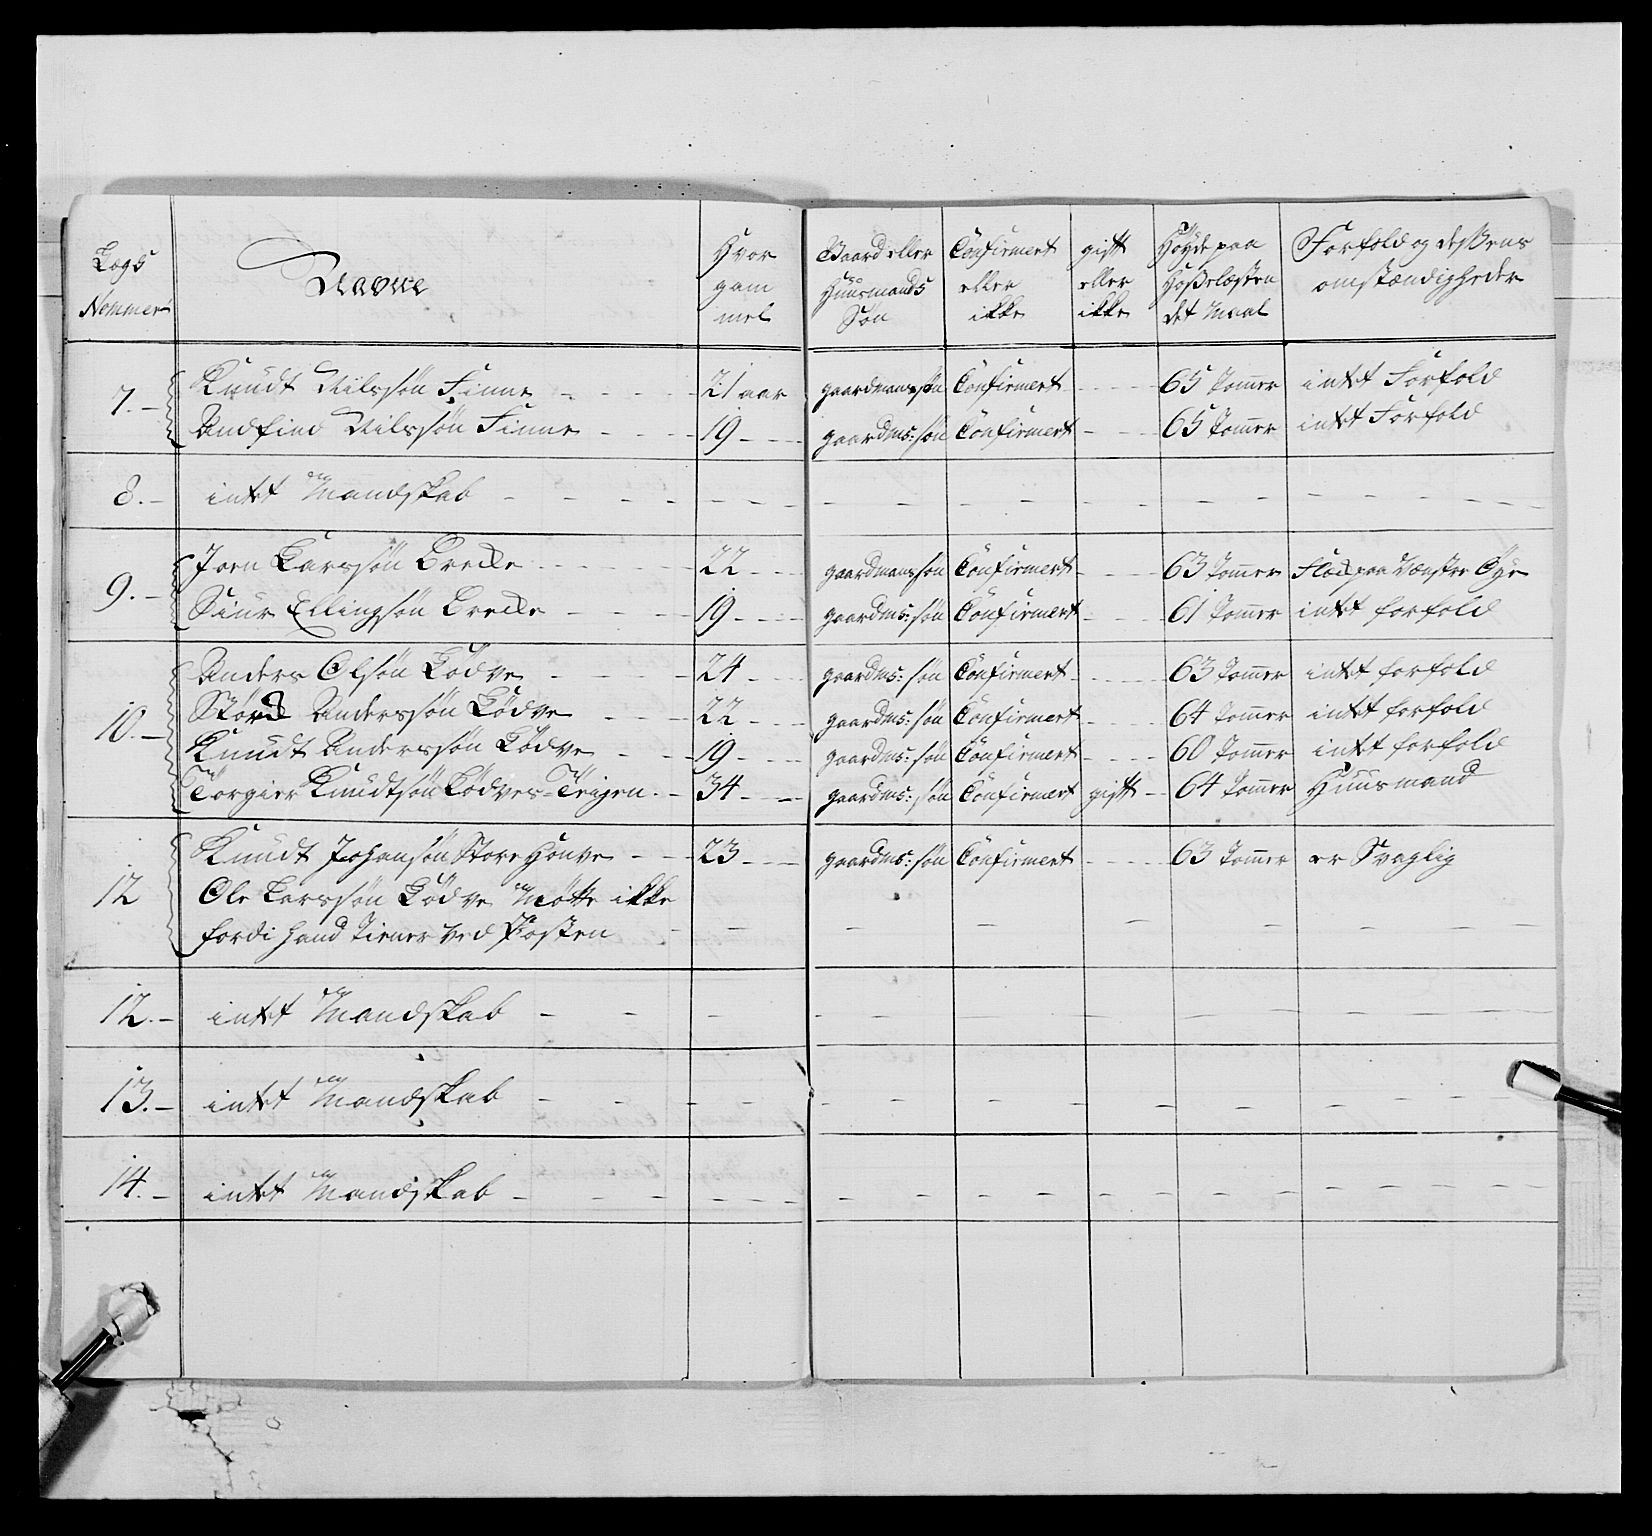 Legs Nommer | Navne | Hvor gam mel | Gaard eller Huusmands Søn | Confirmert eller ikke | gift eller ikke | Høyde paa Hoßelæsten det Maal | Forfald og desßens omstændigheder
7. | Knudt Nilssøn Finne | 21 aar | gaardmanssøn | Confirmert | 65 Tommer | intet Forfald
Andfind Nilssøn Finne | 19 | gaardms: søn | Confirmert | 65 Tommer | intet Forfald
8. | intet Mandskab
9. | Joen Larssøn Brecke | 22 | gaardmanssøn | Confirmert | 63 Tommer | Flæk paa Venstre Øye
Siur Ellingsøn Brecke | 19 | gaardms: søn | Confirmert | 61 Tommer | intet forfald
10. | Anders Olsøn Lødve | 24 | gaardms: søn | Confirmert | 63 Tommer | intet forfald
Anderssøn Lødve | 22 | gaardms: søn | Confirmert | 64 Tommer | intet forfald
Knudt Anderssøn Lødve | 19 | gaardms: søn | Confirmert | 60 Tommer | intet forfald
Torgier Knudtsøn Lødves- | 34 | gaardms: søn | Confirmert | gift | 64 Tommer | Huusmand
12 | Knudt Johansøn Store Honve | 23 | gaardms: søn | Confirmert | 63 Tommer | er Svaglig
Ole Larssøn Lødve Møtte ikke
fordi hand Tiener ved Posten
12. | intet Mandskab
13. | intet Mandskab
14. | intet Mandskab